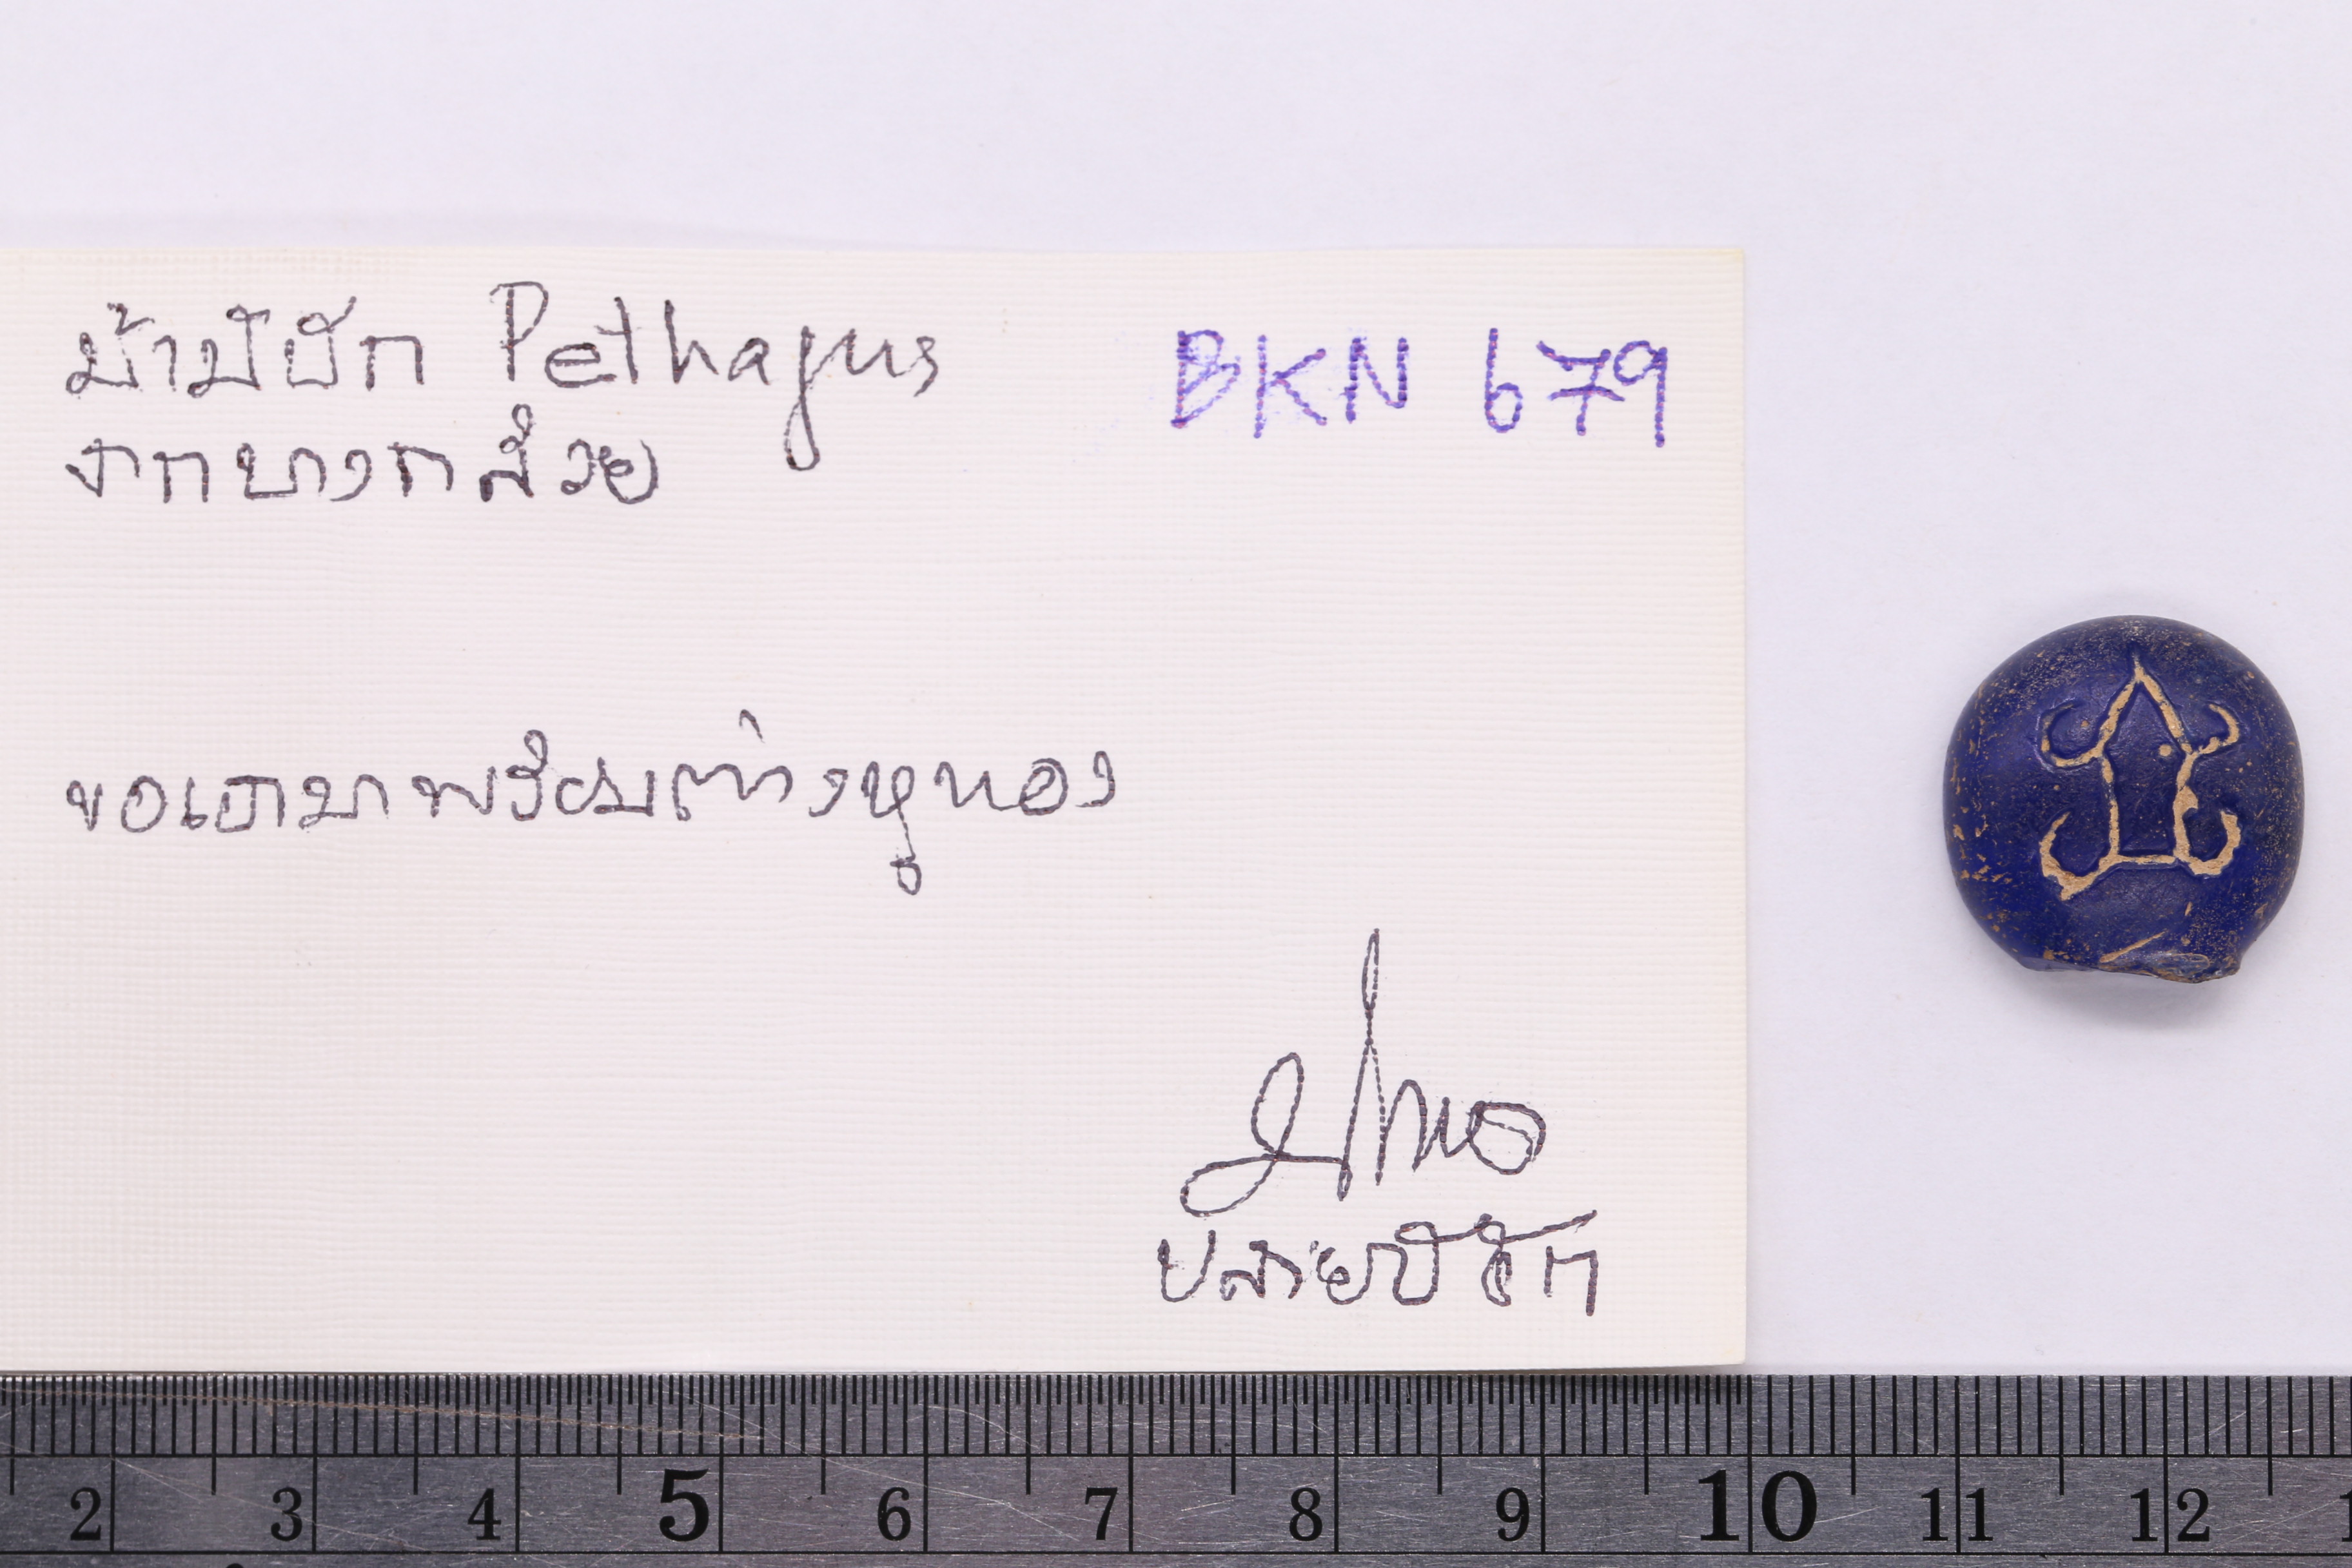 ม้ามีปีก Pethagus
จากบางกล้วย
BKN 679
ขอเอามาพร้อมต่างหูทอง
ปลายปีจัก
2 3 4 5 6 7 8 9 10 11 12